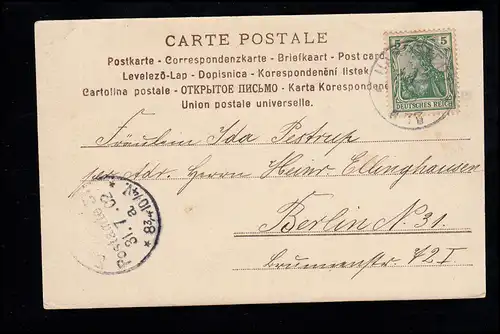 CARTE POSTALE
Postkarte - Correspondenzkarte - Briefkaart - Post card
Levelező-Lap - Dopisnica - Korespondenční lístek
Cartolina postale - ОТКРЫТОЕ ПИСЬМО - Karta Korespondenc
Union postale universelle.
5 5
DEUTSCHES REICH
Fräulein Ida Pestrup
per Adr. Herrn Heinr. Ellinghausen
Berlin N 31.
Brunnenstr. 42 I
31. 7. 02